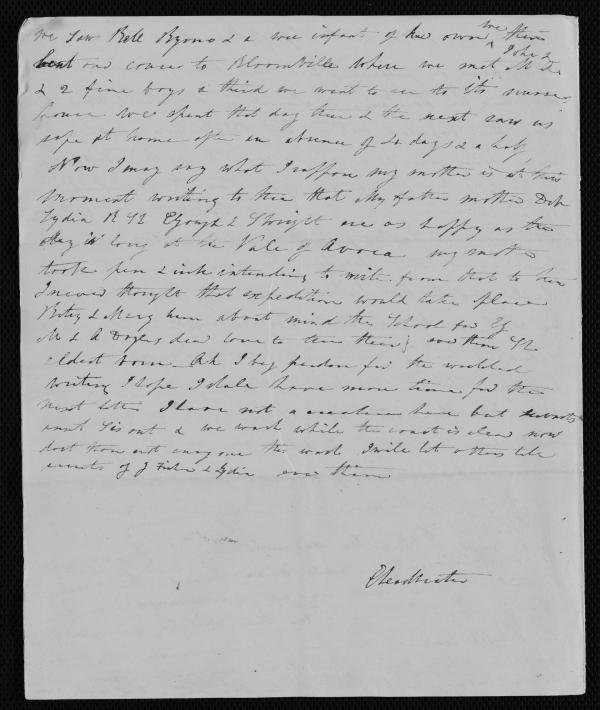 we saw Bell Byrne & a wee infant of her own, we then
bent our course to Bloomville where we met M J John &
& 2 fine boys a third we went to see to its nurses
house we spent that day there & the next saw us
safe at home after an absence of days & a half
Now I may say what I suppose my mother is at this
moment writing to thee that My father mother Deb
Lydia R & Wright are as happy as the
day is long at the Vale of Avoca my mother
took pen & ink intending to write from that to thee
I never thought that expedition would take place
Betsy & Mary here about mind the School for
M & A Doyles dear love to thee
eldest born. Ah I beg pardon for the
writing I hope I shall have more time for the
next letter I have not a creature here but
aunt is out & we wash while the coast is clear now
dost thou not envy me the wash I will let others tell
secrets of J Fisher & Lydia
E Leadbeater